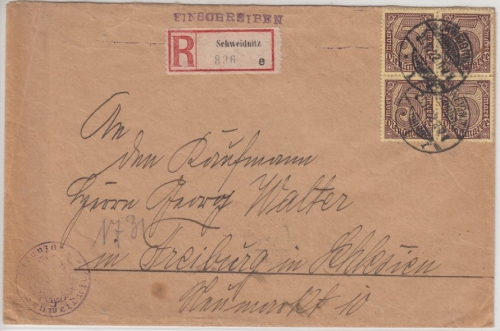 EINSCHREIBEN
R
Schweidnitz
836 e
An
den Kaufmann
Herrn Georg Walter
in Freiburg in Schlesien
Neumarkt 10